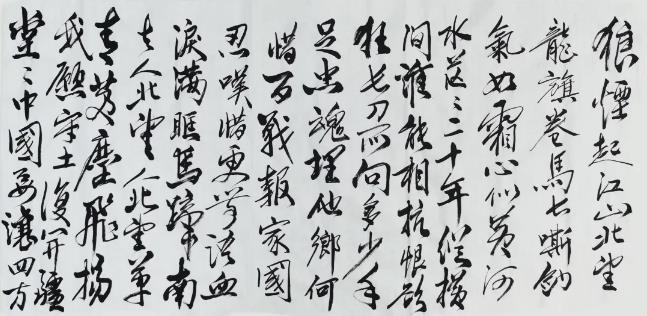 狼煙起江山北望
龍旗卷馬長嘶劍
氣如霜心似黃河
水茫〻二十年縱橫
間誰能相抗恨欲
狂長刀所向多少手
足忠魂埋他鄉何
惜百戰報家國
忍嘆惜更無語血
淚滿眶馬蹄南
去人北望人北望草
青黃塵飛揚
我願守土復開疆
堂〻中國要讓四方